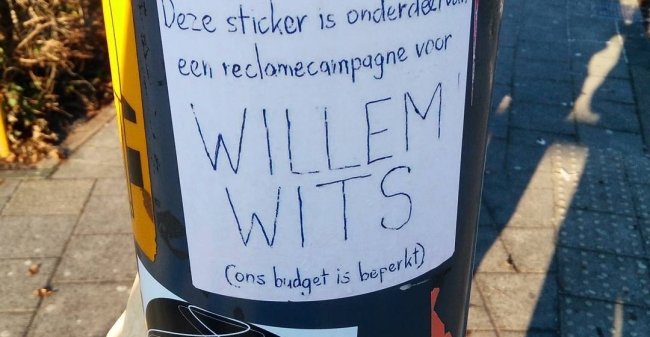 Deze sticker is onderdeel van
een reclamecampagne voor
WILLEM
WITS
(ons budget is beperkt)